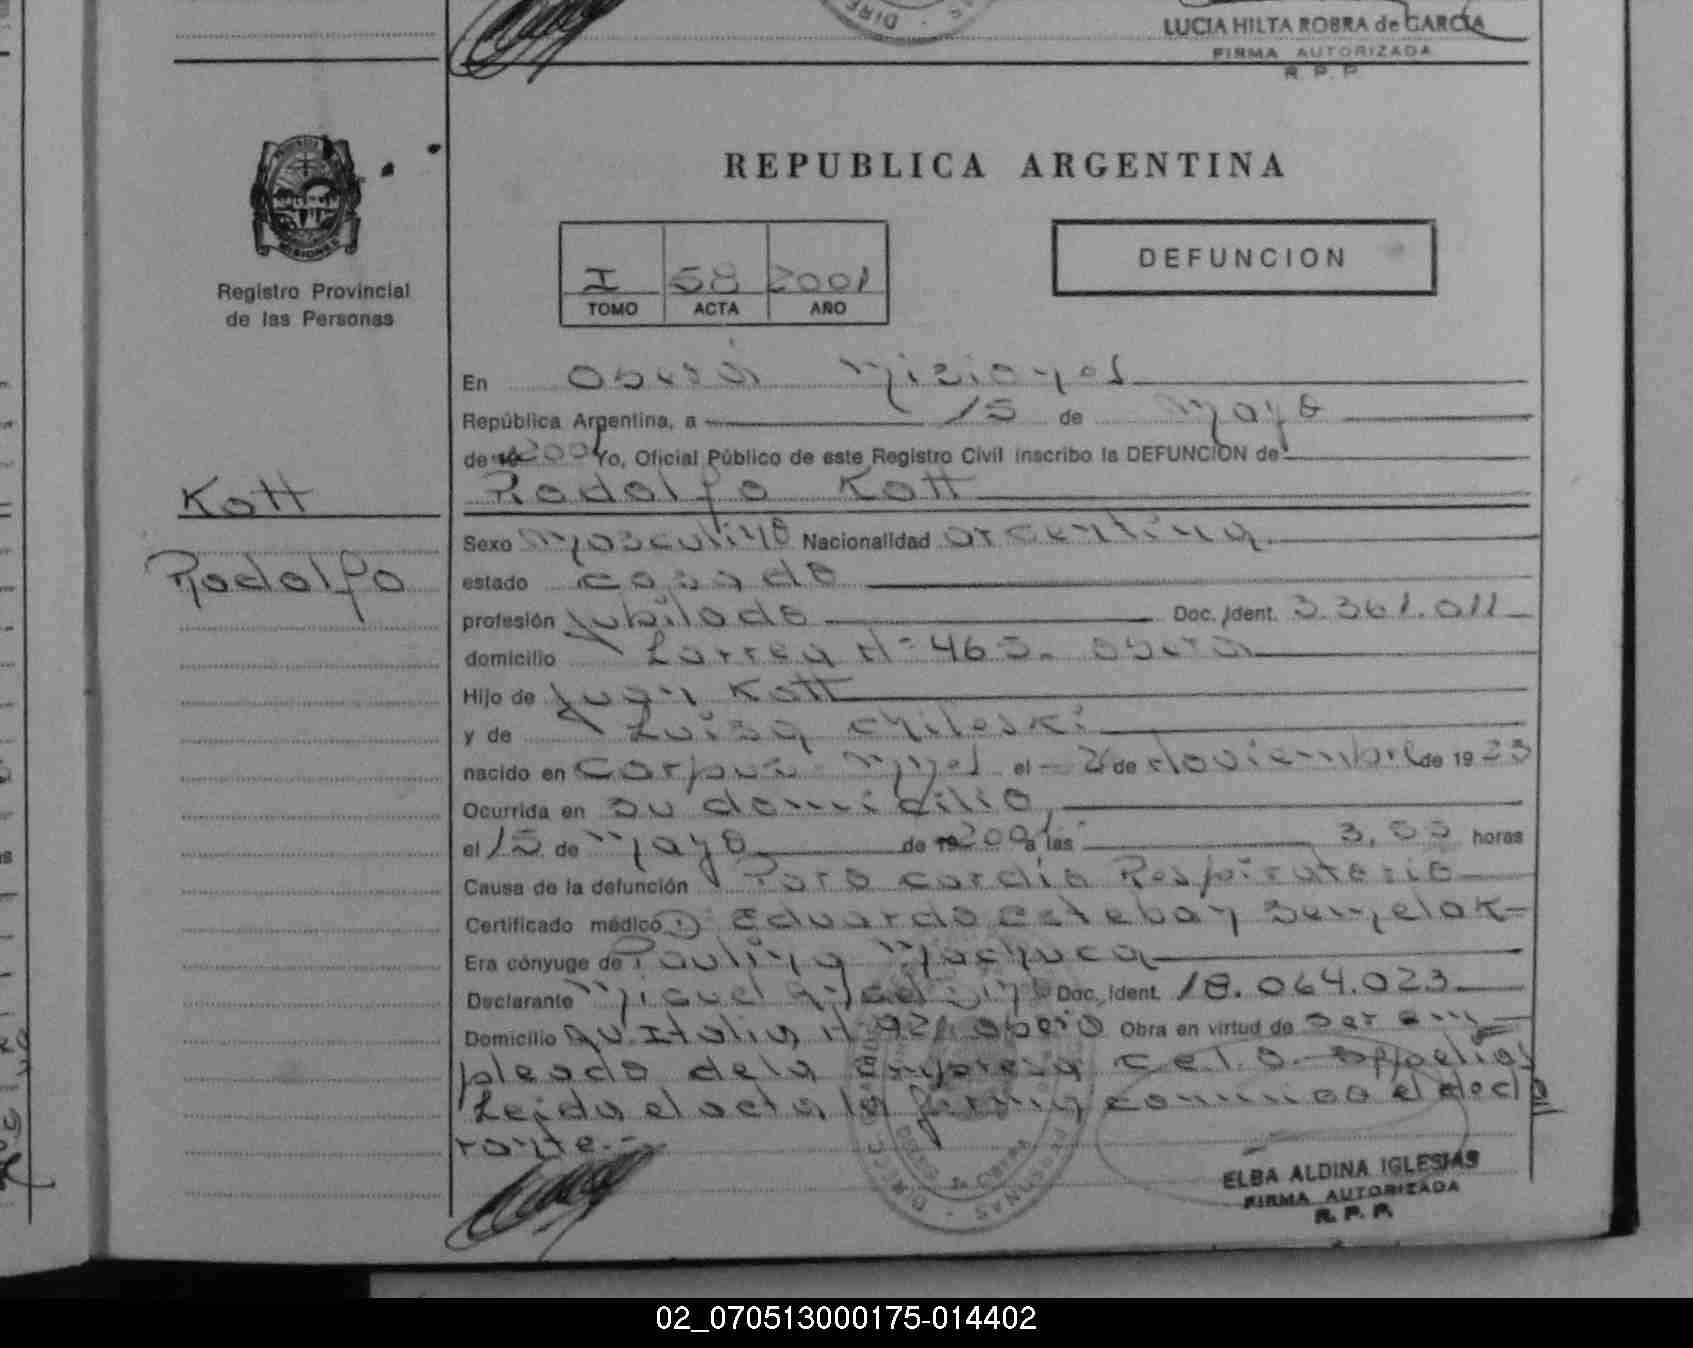 LUCIA HILTA ROBRA de GARCIA
FIRMA AUTORIZADA
R. P. P.
REPUBLICA ARGENTINA
DEFUNCION
I 58 2001
TOMO ACTA AÑO
Registro Provincial
de las Personas
Kott
Rodolfo
En Oberá Misiones
República Argentina, a 15 de Mayo
de 2001 Yo, Oficial Público de este Registro Civil inscribo la DEFUNCION de
Rodolfo Kott
Sexo Masculino Nacionalidad argentina
estado casado
profesión Jubilado Doc. Ident. 3.361.011
domicilio Larrea N° 465. Oberá
Hijo de Juan Kott
y de Luisa Chileski
nacido en Corpus Mnes el 2 de Noviembre de 19 23
Ocurrida en su domicilio
el 15 de Mayo de 2001 a las 3,55 horas
Causa de la defunción Paro cardio Respiratorio
Certificado médico Eduardo Esteban
Era cónyuge de Paulina Machuca
Declarante Miguel Doc. Ident. 18.064.023
Domicilio Av. Italia N° 921 Oberá Obra en virtud de ser em-
pleado de la Empresa C.E.L.O.
Leida el acta la firma conmigo el decla
rante.-
ELBA ALDINA IGLESIAS
FIRMA AUTORIZADA
R. P. P.
02_070513000175-014402